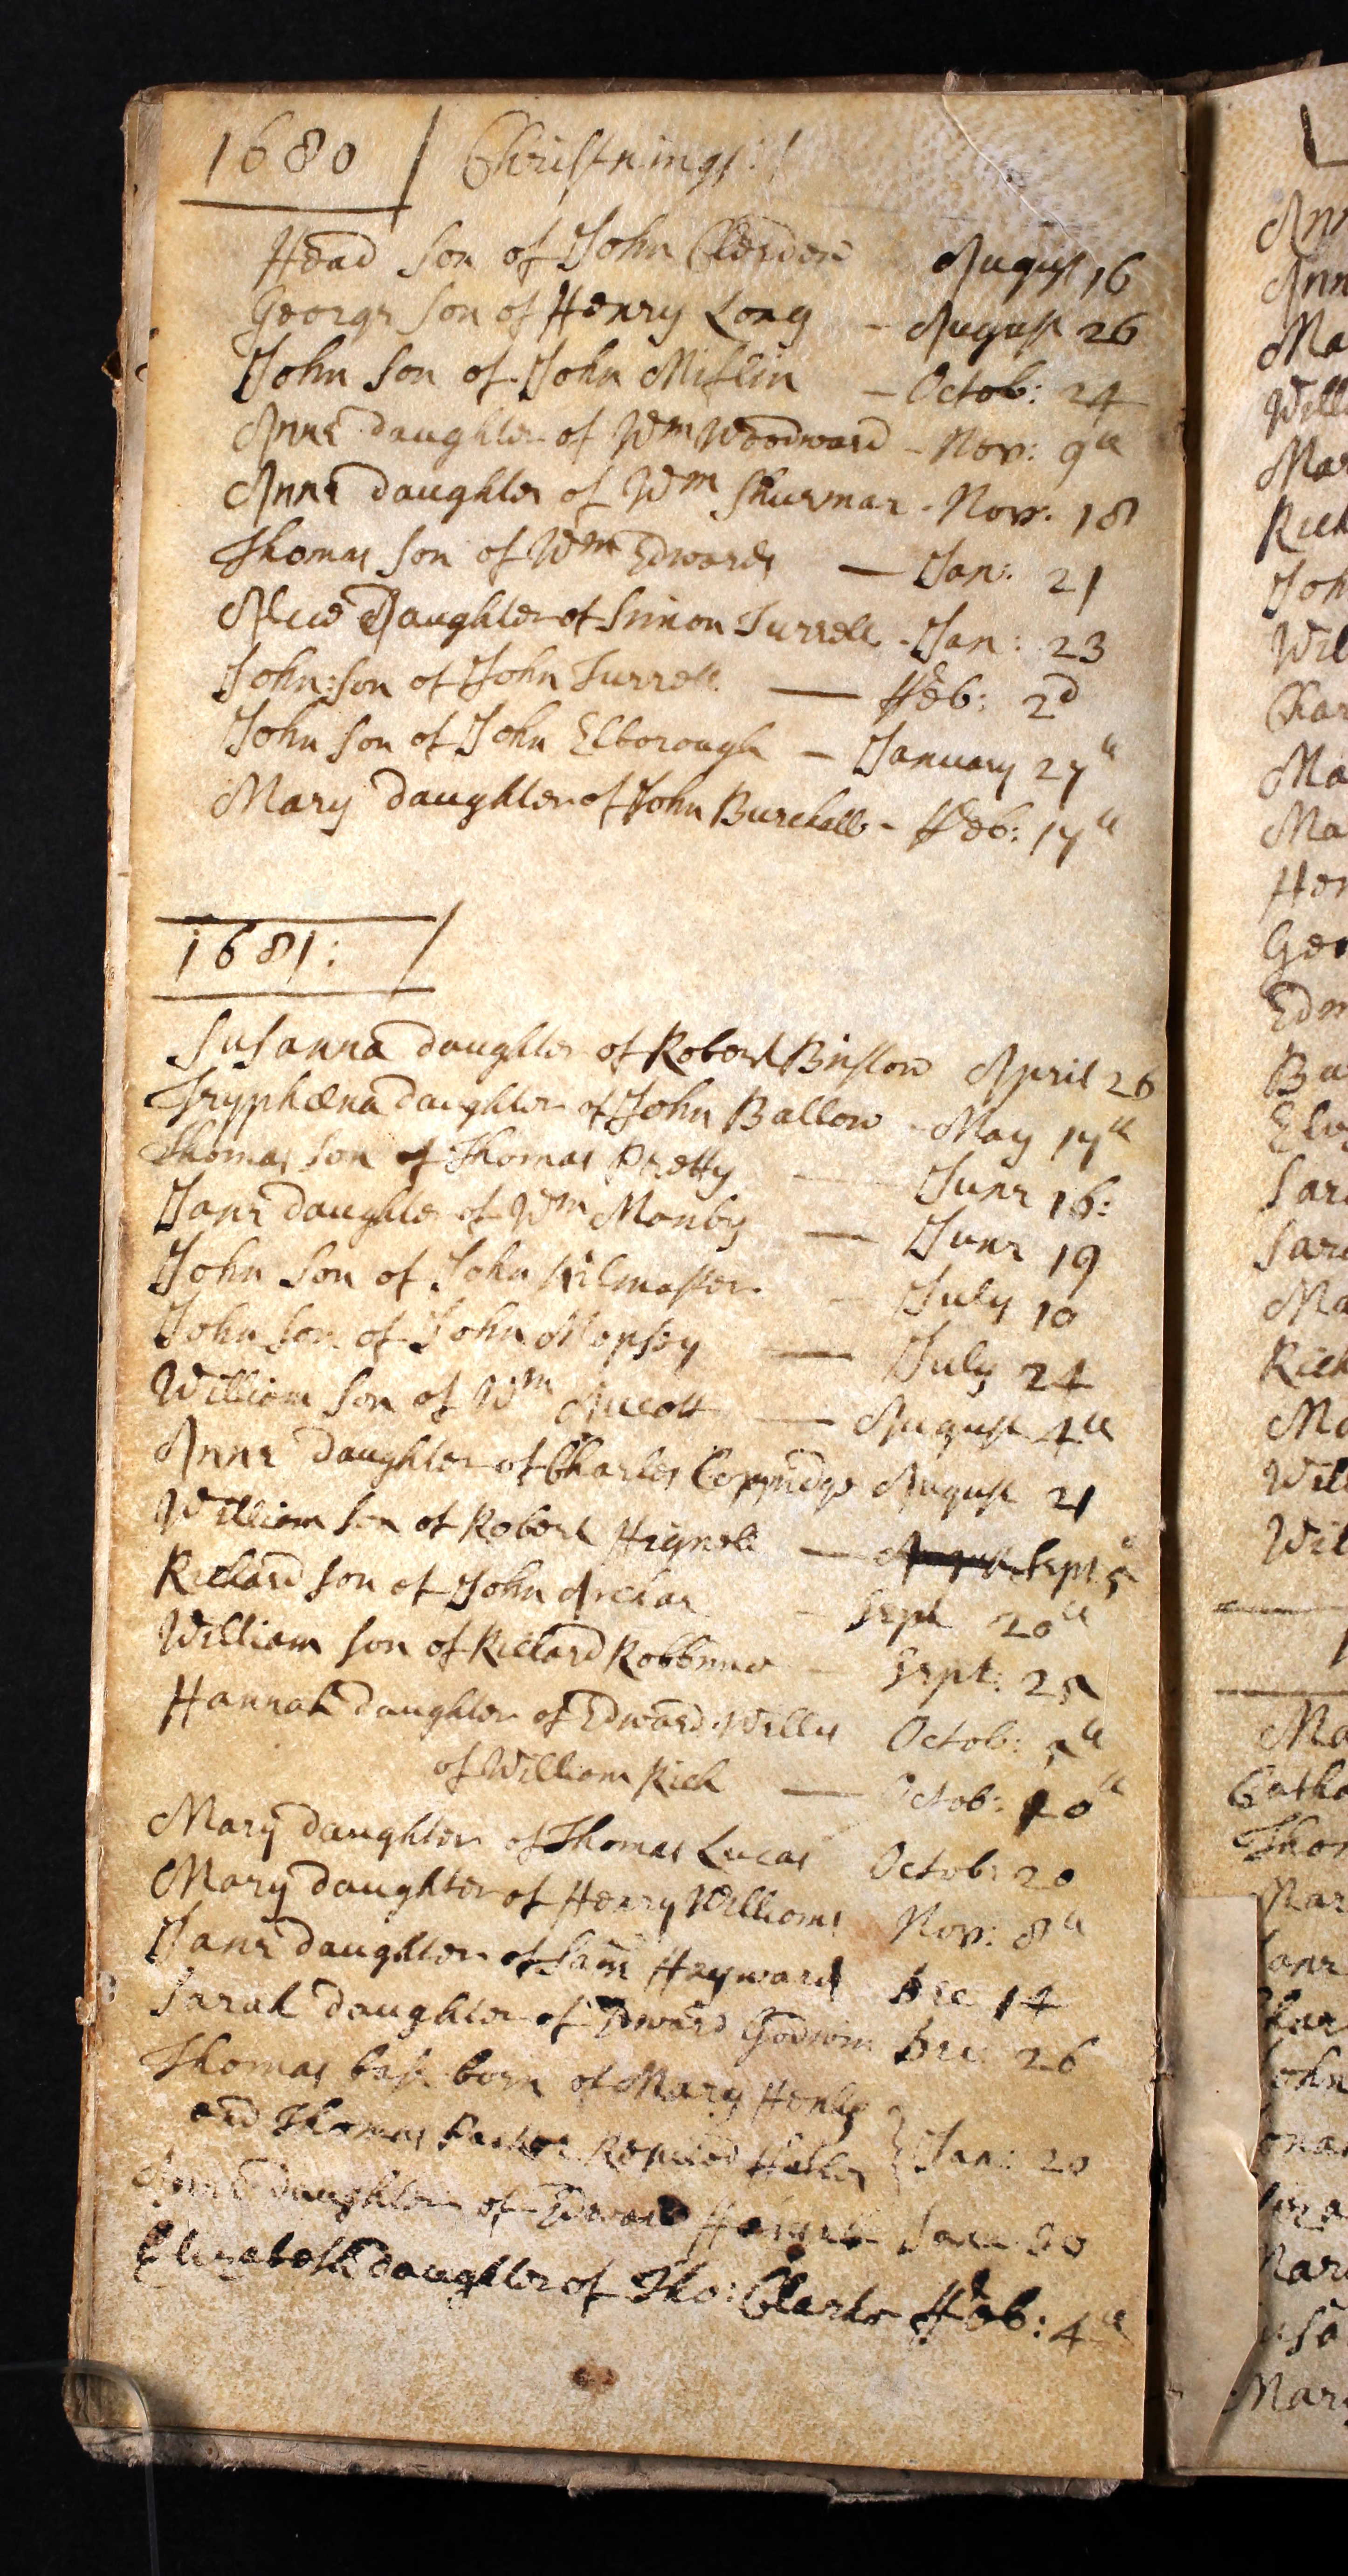 1680 / Christnings:/
Head son of John Clerdon August 16
George son of Henry Long - August 26
John son of John Miflin - Octob: 24
Anne daughter of Wm Woodward - Nov: 9th
Anne daughter of Wm Shurmar - Nov. 18
Thomas son of Wm Edwards — Jan: 21
Alice Daughter of Simon Turrell - Jan: 23
John: son of John Turrell — ffeb: 2d
John son of John Elborough — January 27th
Mary daughter of John Burchall - ffeb: 17th
1681: /
Susanna daughter of Robert Bristow April 26
Tryphæna daughter of John Ballow - May 17th
Thomas son of Thomas Pretty — June 16:
Jane daughter of Wm Manby — June 19
John son of John Kilmaster - July 10
John son of John Mopsey — July 24
William son of Wm Aucott — August 4th
Anne daughter of Charles August 21
William son of Robert Hignell — August Sept 5
Richard son of John Archar - Sept 20th
William son of Richard - Sept: 25
Hannah daughter of Edward Willis Octob: 5th
of William Rich — Octob: 10th
Mary daughter of Thomas Lucas Octob: 20
Mary daughter of Henry Williams Nov: 8th
Jane daughter of Saml Hayward Dec 14
Sarah daughter of Edward Godwin Dec: 26
Thomas base born of Mary Henly
and Thomas reputed father } Jan: 20
Anne daughter of Edward Jan: 30
Elizabeth daughter of Tho: Clarke ffeb: 4th
Ann
Mar
Rich
Joh
Wil
Char
Ma
Ma
Hen
Geo
Edw
Ba
Sar
Sara
Ma
Rich
Ma
Will
Wil
Ma
Catha
Thom
Mar
Jane
Mar